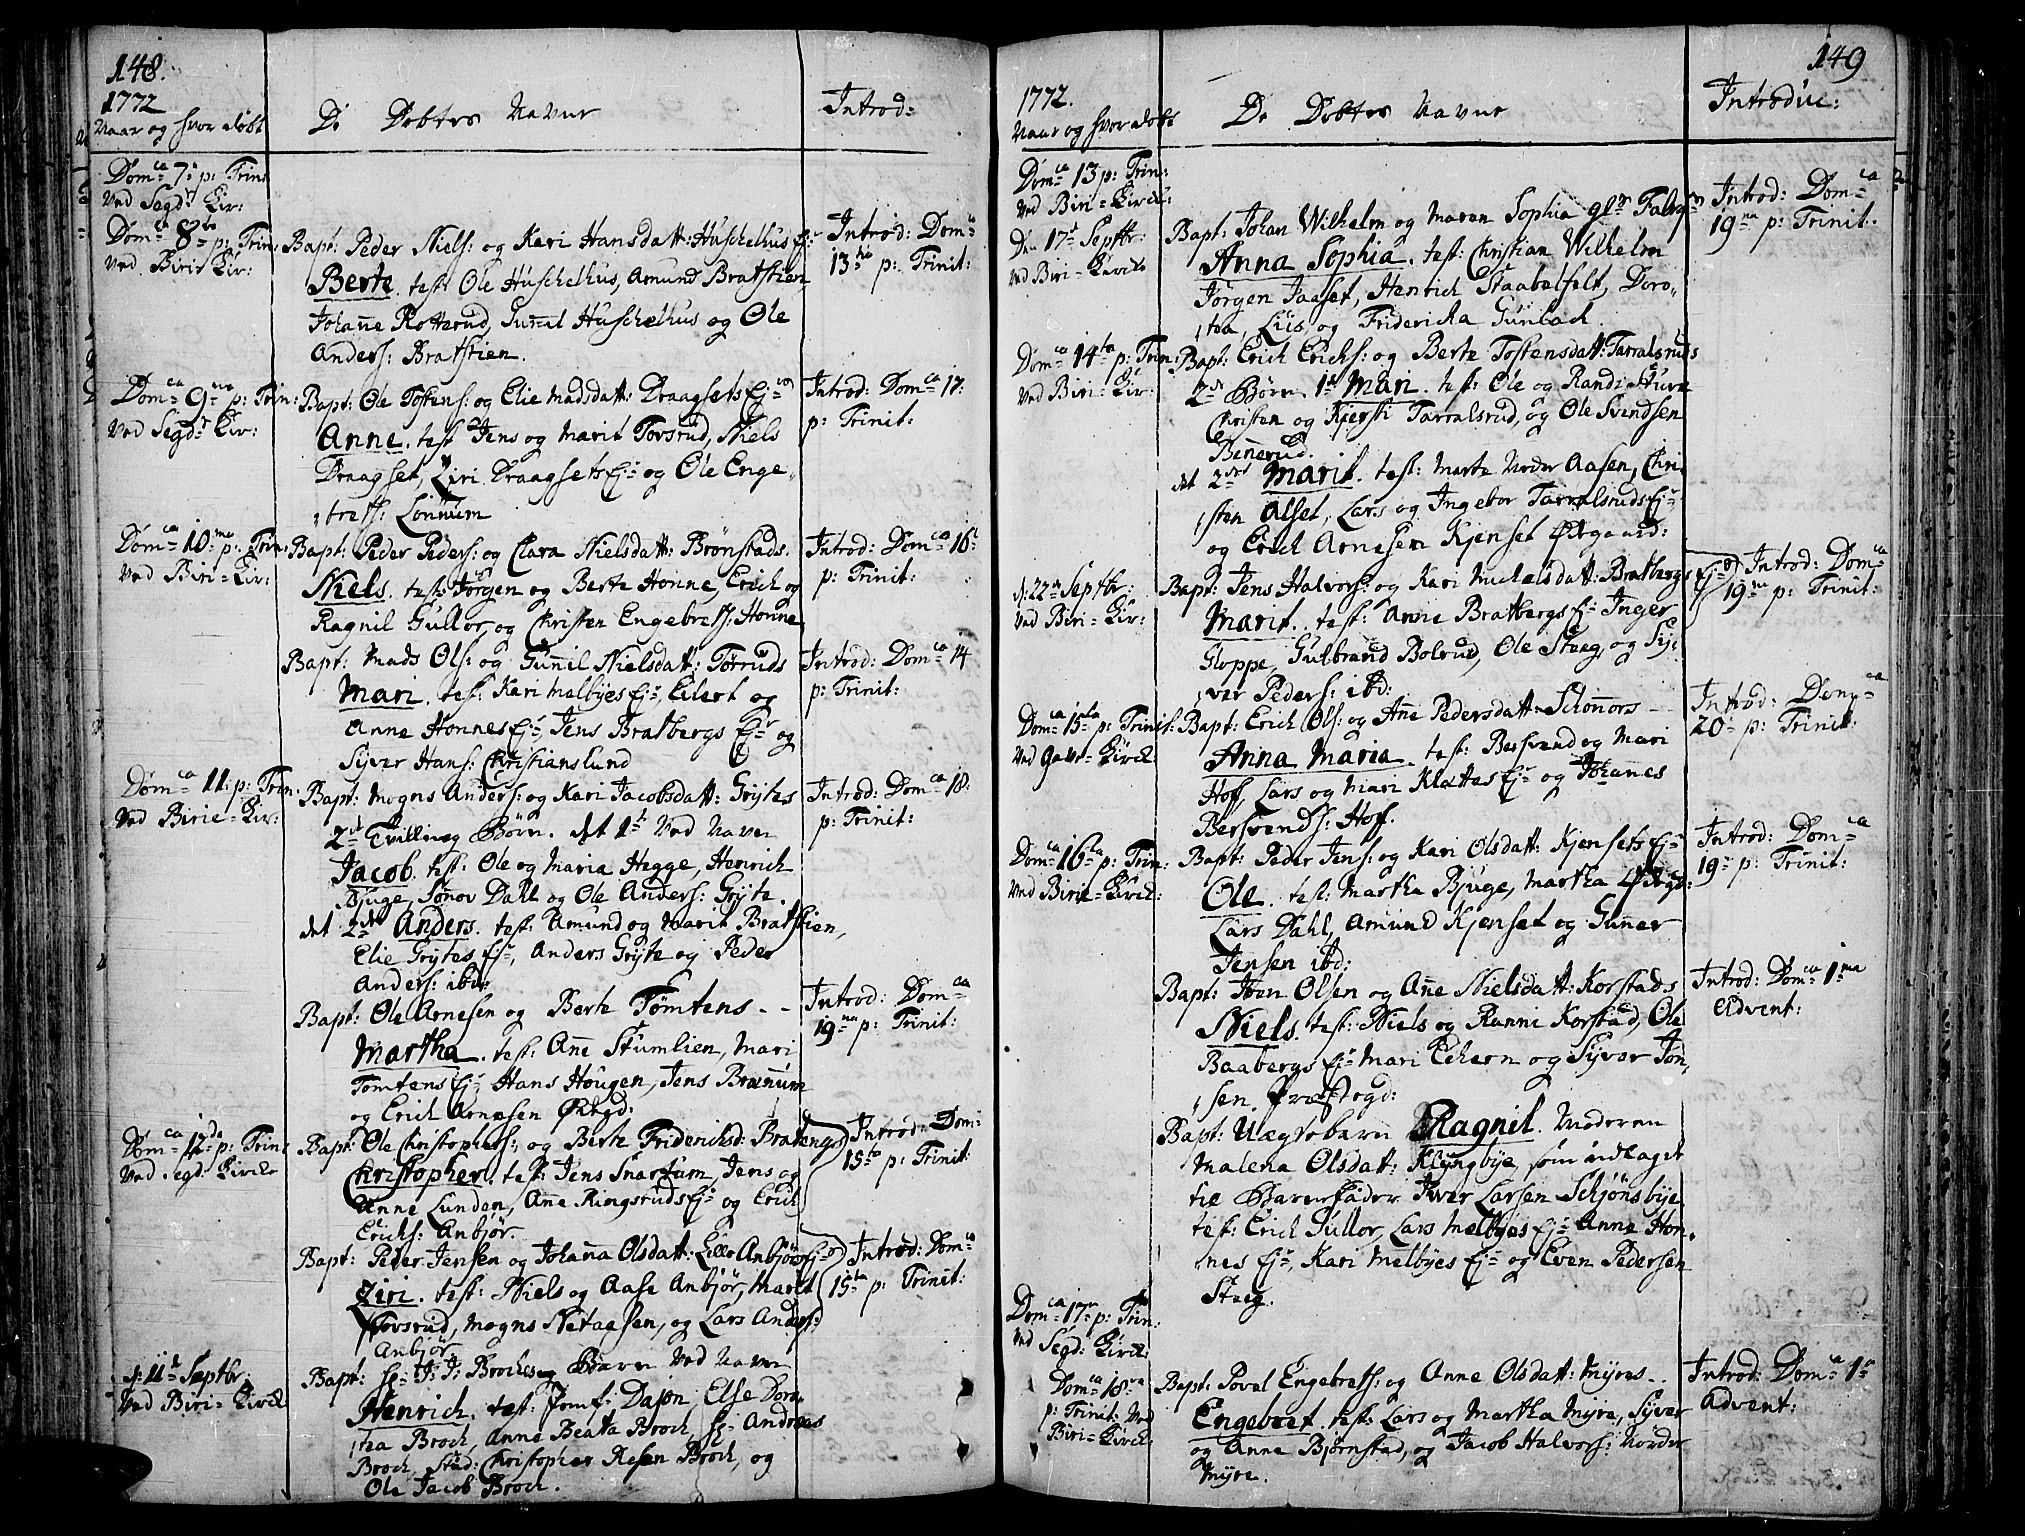 148.
1772
Naar og hvor døbt
De Døbtes Navne
Introd:
Dom:ca 7:a p: Trin:
Ved Segd: Kir:
Dom:ca 8:va p: Trin:
Ved Birie Kir:
Bapt: Peder Niels: og Kari Hansdatt: Huschelhus Ej:r
Berte. test: Ole Huschelhus, Amund Bratstien,
Johanne Rotterud, Guñil Huschelhus og Ole
Anders: Bratstien.
Introd: Dom:ca
13:tia p: Trinit:
Dom:ca 9:na p: Trin:
Ved Segd: Kir:
Bapt: Ole Tostens: og Elie Madsdatt: Draagsets Ej:r
Anne. test: Jens og Marit Torsrud, Niels
Draagset, Ziri Draagsets Ej:r og Ole Enge-
brets: Lønnum
Introd: Dom:ca 17:
p: Trinit:
Dom:ca 10:ma p: Trin:
Ved Biri-Kir:
Bapt: Peder Peders: og Clara Nielsdatt: Brønstads.
Niels. test: Jørgen og Berte Honne, Erich og
Ragnil Gullor, og Christen Engebrets: Honne
Introd: Dom:ca 16:
p: Trinit:
Bapt: Mads Ols: og Guñil Nielsdatt: Torruds
Mari. test: Kari Melbyes Ej:r, Eilert og
Anne Honnes Ej:r, Jens Bratbergs Ej:r og
Syver Hans: Christianslund
Introd: Dom:ca 14
p: Trinit:
Dom:ca 11: p: Trin:
Ved Birie-Kir:
Bapt: Mogns Anders: og Kari Jacobsdatt: Grytes
2:de Tvilling Børn. det 1:te Ved Navn
Jacob. test: Ole og Maria Hegge, Henrich
Bjuge, Sønov Dahl og Ole Anders: Gryte.
det 2:det Anders. test: Amund og Marit Bratstien,
Elie Grytes Ej:r, Anders Gryte og Peder
Anders: ibd:
Introd: Dom:ca 18:
p: Trinit:
Bapt: Ole Arnesen og Berte Tømtens - -
Martha. test: Añe Stumlien, Mari
Tømtens Ej:r Hans Hougen, Jens Brænnum
og Erich Arnesen Østgd:
Introd: Dom:ca
19:na p: Trinit:
Dom:ca 12:da p: Trin:
Ved Segd: Kircke
Bapt: Ole Christophers: og Berte Friderichsd: Bratengs
Christopher. test: Jens Snartum, Jens og
Anne Lunden, Añe Ringsruds Ej:r og Erich
Erichs: Anbjør.
Introd: Dom:
15:ta p: Trinit:
Bapt: Peder Jensen og Johanna Olsdatt: Lille Anbjørs Ej:r
Ziri. test: Niels og Aase Anbjør, Marit
Torsrud, Mogns Netagsen, og Lars Anders:
Anbjør.
Introd: Dom:ca
15:ta p: Trinit:
d: 11:te Septbr:
Ved Biri-Kirck:
Bapt: Hr: J: J: Brochs Barn Ved Navn
Henrich. test: Jomf: Dajon, Else Doro-
thea Broch, Anna Beata Broch, Hr: Andreas
Broch, Stud: Christopher Resen Broch, og
Ole Jacob Broch.
149
1772.
Naar og hvor døbt
De Døbtes Navne
Introduc:
Dom:ca 13 p: Trin:
Ved Biri-Kirck:
Den 17:de Septbr:
Ved Biri-Kircke
Bapt: Johan Wilhelm og Maren Sophia
Anna Sophia. test: Christian Wilhelm
Jørgen Jaaset, Henrich Staabelfelt, Doro-
thea Liis, og Fridericka Günbach
Introd: Dom:ca
19:na p: Trinit:
Dom:ca 14:ta p: Trin:
Ved Biri-Kir:
Bapt: Erich Erichs: og Berte Tostensdatt: Tarralsruds
2:de Børn 1:te Mari. test: Ole og Randi Sture
Christen og Kjersti Tarralsrud, og Ole Svendsen
Binerud.
det 2:det Marit. test: Marte Nordre Aasen, Chri-
sten Alset, Lars og Ingebor Tarralsruds Ej:r
og Erich Arnesen Kjenset Østgaard:
d: 22:de Septbr:
Ved Biri-Kir:
Bapt: Jens Halvors: og Kari Michelsdatt: Bratbergs Ej:r
Marit. test: Anne Bratbergs Ej:r Inger
Gloppe, Gulbrand Bolrud, Ole Staeg, og Sy-
ver Peders: ibd:
Introd: Dom:ca
19:na p: Trinit:
Dom:ca 15:ta p: Trinit:
Ved Hov-Kirck:
Bapt: Erich Ols: og Añe Pedersdatt: Schoñors - -
Anna Maria. test: Bersvend og Mari
Hoff, Lars og Mari Klettes Ej:r og Johannes
Bersvends: Hof.
Introd: Dom:ca
20: p: Trinit:
Dom:ca 16:ta p: Trin:
Ved Birie-Kirck:
Bapt: Peder Jens: og Kari Olsdatt: Kjensets Ej:r
Ole. test: Martha Bjuge, Martha Østgd:
Lars Dahl, Amund Kjenset og Guñer
Jensen ibd:
Introd: Dom:ca
19: p: Trinit:
Bapt: Iven Olsen og Añe Nielsdatt: Korstads
Niels. test: Niels og Ranni Korstad, Ole
Baabergs Ej:r Mari Echern og Syver Jon-
sen Præstegd:
Introd: Dom:ca 1:ma
Advent:
Bapt: Uægtebarn Ragnil. Moderen
Malena Olsdatt: Klyngbye, som udlaget
til Barnefader Iver Larsen Schjønsbye
test: Erich Gullor, Lars Melbyes Ej:r Anne Hon-
nes Ej:r, Kari Melbyes Ej:r og Even Pedersen
Staeg.
Dom:ca 17:ma p: Trin:
Ved Segd: Kirck:
Dom:ca 18:va
p: Trinit: Ved
Biri-Kirck:
Bapt: Povel Engebrets: og Anne Olsdatt: Myres - -
Engebret. test: Lars og Martha Myre, Syver
og Anna Bjørnstad, og Jacob Halvors: Nordre
Myre.
Introd: Dom:ca 1:a
Advent: